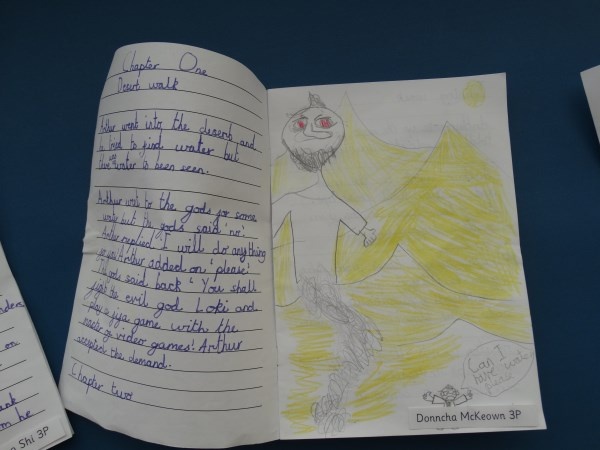 Chapter One
Desert walk
Arthur went into the desert and
he tried to find water but
water is been seen.
Arthur went to the gods for some
water but the gods said 'no'
Arthur replied 'I will do anything
for you' Arthur added on 'please'
The gods said back 'You shall
fight the evil god Loki and
play a game with the
of video games'. Arthur
accepted the demand.
Chapter two
Can I
have water
please
Donncha McKeown 3P
on
he
Shi 3P